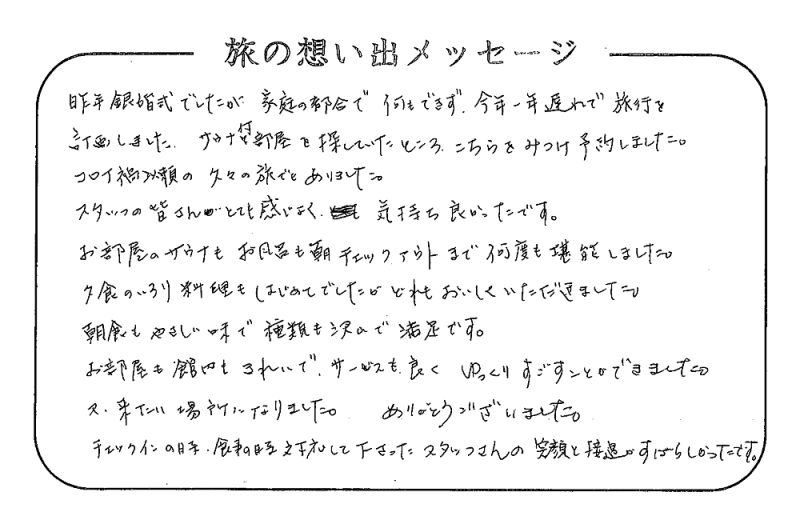 旅の想い出メッセージ
昨年銀婚式でしたが 家庭の都合で 何もできず、今年一年遅れで 旅行を
計画しました。 サウナ付部屋を探していたところ、こちらをみつけ予約しました。
コロナ禍以来の 久々の旅でもありました。
スタッフの皆さんがとても感じよく、 気持ち良かったです。
お部屋のサウナも お風呂も朝チェックアウトまで何度も堪能しました。
夕食のいろり料理もはじめてでしたが どれもおいしくいただきました。
朝食も やさしい味で 種類も沢山で 満足です。
お部屋も館内もきれいで、サービスも良く ゆっくりすごすことができました。
又、来たい場所になりました。 ありがとうございました。
チェックインの時、食事の時 対応して下さった スタッフさんの 笑顔と接遇がすばらしかったです。